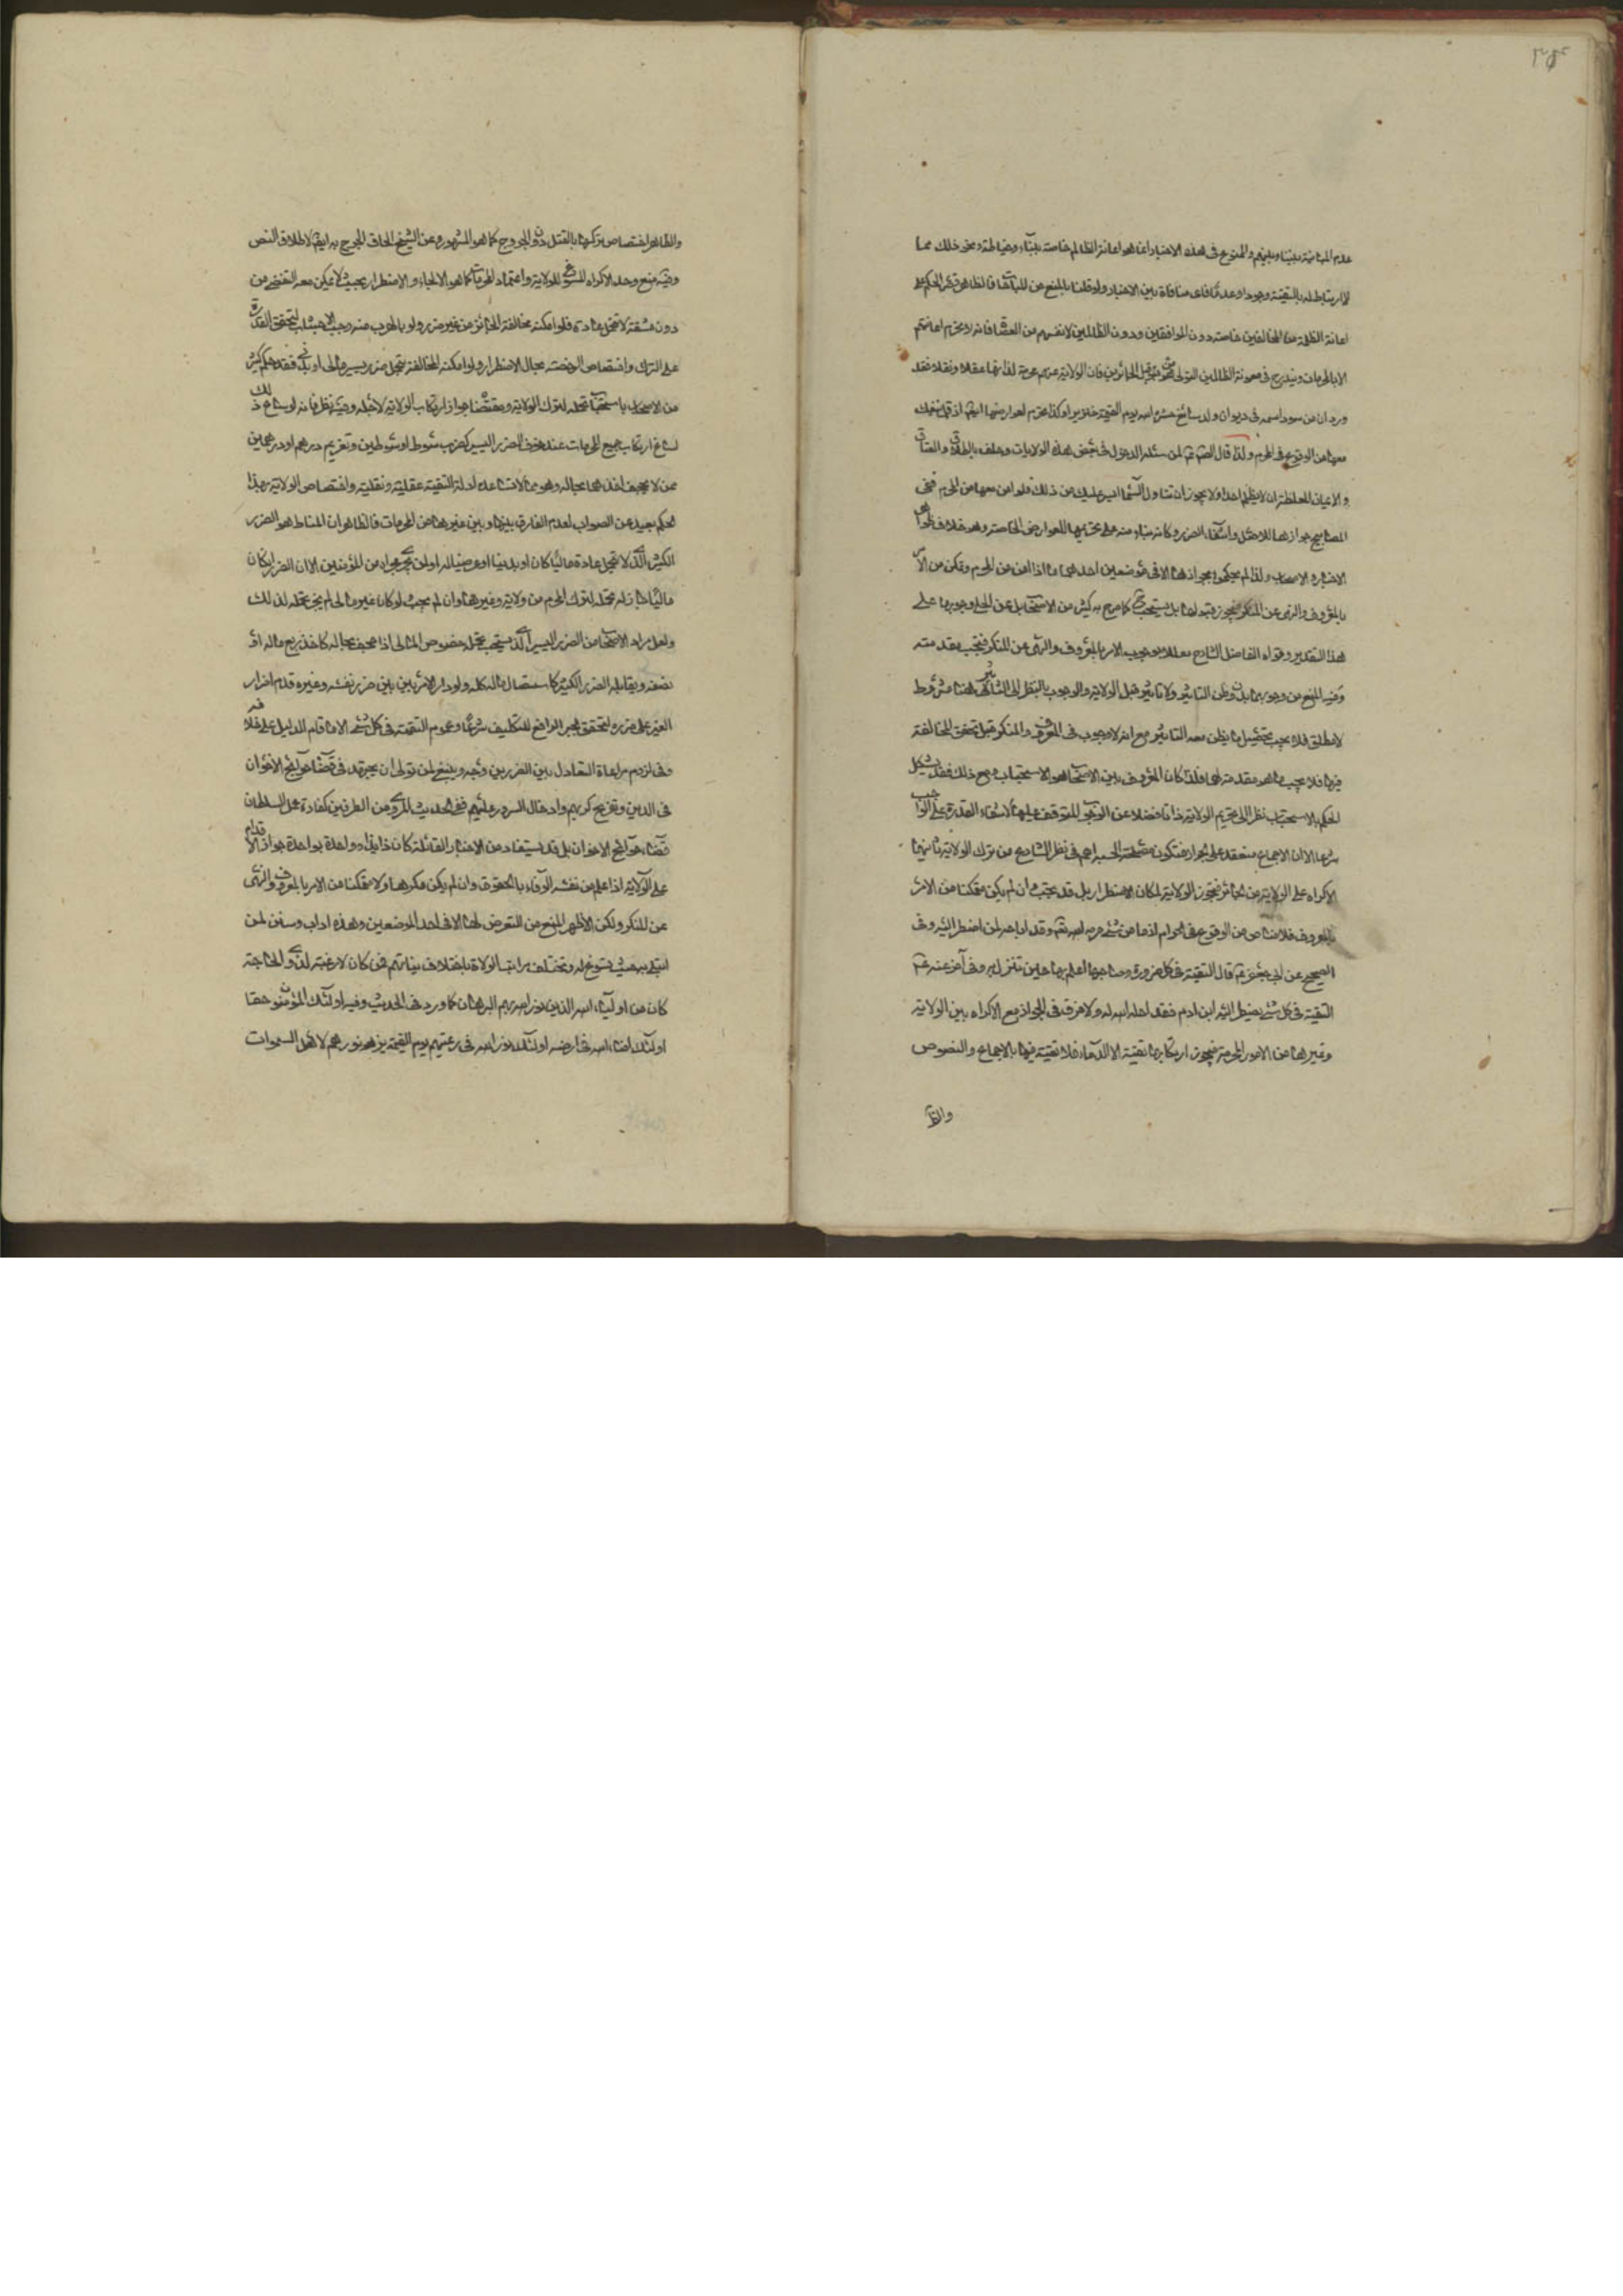 عدم المباينة بيننا وبينهم والممنوع فى هذه الاخبار انما هو اعانة الظالم خاصة ببناء وخياطة ونحو ذلك مما
لا ارتباط له بالتقية وجودا وعدما فاى منافاة بين الاخبار ولو قلنا بالمنع من المباحات فالظاهر قصر الحكم على
اعانة الظلمة من المخالفين خاصة دون الموافقين ودون الظالمين لانفسهم من العصاة فانه لا يحرم اعانتهم
الا بالمحرمات ويندرج فى معونة الظالمين التولى من قبل الجائرين فان الولاية عنهم محرمة لذاتها عقلا ونقلا فقد
ورد ان من سود اسمه فى ديوان ولد سابع حشره الله يوم القيمة خنزيرا وكذا تحرم لعوارضها ايضا اذ قل ما ينفك
معها من الوقوع فى المحرم ولذا قال الصادق ع لمن سئله الدخول فى بعض هذه الولايات وحلف بالطلاق والعتاق
والايمان المغلظة ان لا يظلم احدا ولا يجوز ان تناول السماء ايسر عليك من ذلك فلو امن معها من المحرم ففى
المصابيح جوازها للاصل وانتفاء الضرر وكانه بناء منه على تحريمها للعوارض الخاصة وهو خلاف ظواهر
الاخبار والاصحاب ولذا لم يحكموا بجوازها الا فى موضعين احدهما ما اذا امن من المحرم وتمكن من الامر
بالمعروف والنهى عن المنكر فيجوز قبولها بل يستحب كما صرح به كثير من الاصحاب بل عن الحلى وجوبها على
هذا التقدير وقواه الفاضل الشارح معللا بوجوب الامر بالمعروف والنهى عن المنكر فتجب مقدمته
وفيه المنع من وجوبهما بدون ظن التاثير ولا تاثير قبل الولاية والوجوب بالنظر الى التاثير هنا مشروط
لا مطلق فلا يجب تحصيل ما يظن معه التاثير مع انه لا وجوب فى المعروف والمنكر قبل تحقق المخالفة
فيها فلا يجب ما هو مقدمة لها فلذا كان المعروف بين الاصحاب هو الاستحباب ومع ذلك فقد يشكل
الحكم بالاستحباب نظرا الى تحريم الولاية ذاتا فضلا عن الوجوب المتوقف عليها لانتفاء القدرة على الواجب
بها الا ان الاجماع منعقد على الجواز فتكون مصلحة الحسبة اهم فى نظر الشارع من ترك الولاية ثانيهما
الاكراه على الولاية من الجائر فتجوز الولاية لمكان الاضطرار بل قد تجب وان لم يكن متمكنا من الامر
بالمعروف فلا مناص من الوقوع فى الحرام اذ ما من شئ حرمه الله تعالى وقد اباحه لمن اضطر اليه وفى
الصحيح عن ابى جعفر ع قال التقية فى كل ضرورة وصاحبها اعلم بها حين تنزل به وفى آخر عنه ع
التقية فى كل شئ يضطر اليه ابن ادم فقد احله الله له ولا فرق فى الجواز مع الاكراه بين الولاية
وغيرها من الامور المحرمة فيجوز ارتكابها تقية الا الدماء فلا تقية فيها بالاجماع والنصوص
والظا
والظاهر اختصاص تركها بالقتل دون الجروح كما هو المشهور وعن الشيخ الحاق الجرح به ايضا لاطلاق النص
وفيه منع وحد الاكراه المسوغ للولاية واعتماد المحرمات كما هو الالجاء والاضطرار بحيث لا يمكن معه التفصى من
دون مشقة لا تتحمل عادة فلو امكنه مخالفة الجائر من غير ضرر ولو بالهرب منه وجب الاجتناب لتحقق القدرة
على الترك واختصاص الرخصة بحال الاضطرار ولو امكنه المخالفة بتحمل ضرر يسير مالى او بدنى فقد حكم كثير
من الاصحاب باستحباب تحمله لترك الولاية ومقتضاه جواز ارتكاب الولاية لاجله وفيه نظر فانه لو ساغ ذلك
لساغ ارتكاب جميع المحرمات عند خوف الضرر اليسير كضرب سوط او سوطين وتغريم درهم او درهمين
ممن لا يجحف اخذهما بحاله وهو مما لا تساعده ادلة التقية عقلية ونقلية واختصاص الولاية بهذا
الحكم بعيد عن الصواب لعدم الفارق بينها وبين غيرها من المحرمات فالظاهر ان المناط هو الضرر
الكثير الذى لا يتحمل عادة ماليا كان او بدنيا او عرضيا له او لمن يجرى مجراه من المؤمنين الا ان الضرر ان كان
ماليا جاز له تحمله لترك المحرم من ولاية وغيرها وان لم يجب ولو كان غير مالى لم يجز تحمله لذلك
ولعل مراد الاصحاب من الضرر اليسير الذى يستحب تحمله خصوص المالى اذا اجحف بحاله كاخذ ربع ماله او
نصفه ويقابله الضرر الكثير كاستئصال ماله كله ولو دار الامر بين بين ضرر نفسه وغيره قدم اضرار
الغير على ضرره لتحقق الجبر الرافع للتكليف شرعا وعموم التقية فى كل شئ الا ما قام الدليل على خلافه
وفى لزوم مراعاة التعادل بين الضررين وجه وينبغى لمن تولى ان يجتهد فى قضاء حوائج الاخوان
فى الدين وتفريج كربهم وادخال السرور عليهم ففى الحديث المروى من الطرفين كفارة عمل السلطان
قضاء حوائج الاخوان بل قد يستفاد من الاخبار القائلة كان ذا بذا وواحدة بواحدة جواز الاقدام
على الولاية اذا علم من نفسه الوفاء بالحقوق وان لم يكن مكرها ولا متمكنا من الامر بالمعروف والنهى
عن المنكر ولكن الاظهر المنع من التعرض لها الا فى احد الموضعين وهذه اداب وسنن لمن
ابتلى بها حيث تسوغ له وتختلف مراتب الولاة باختلاف نياتهم فمن كان لا رغبة لذوى الحاجة
كان من اولياء الله الذين نور الله بهم البرهان كما ورد فى الحديث وفيه اولئك المؤمنون حقا
اولئك امناء الله فى ارضه اولئك نور الله فى رعيتهم يوم القيمة يزهر نورهم لاهل السموات